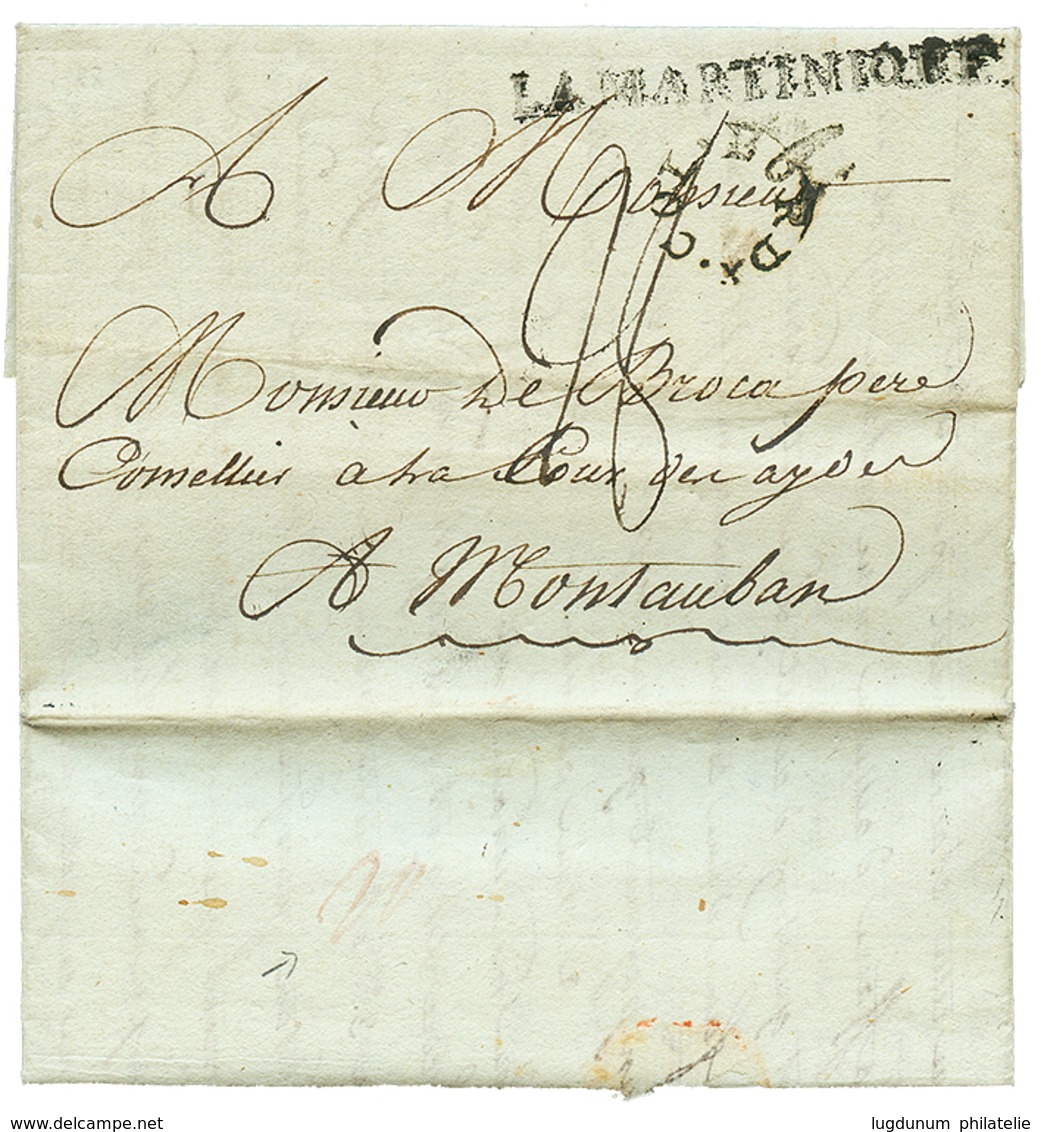 LA MARTINIQUE
COL. PAR BORD.
A Monsieur
Monsieur De Broca pere
Consellier à la Cour des aydes
A Montauban
www.delcampe.net
lugdunum philatelie